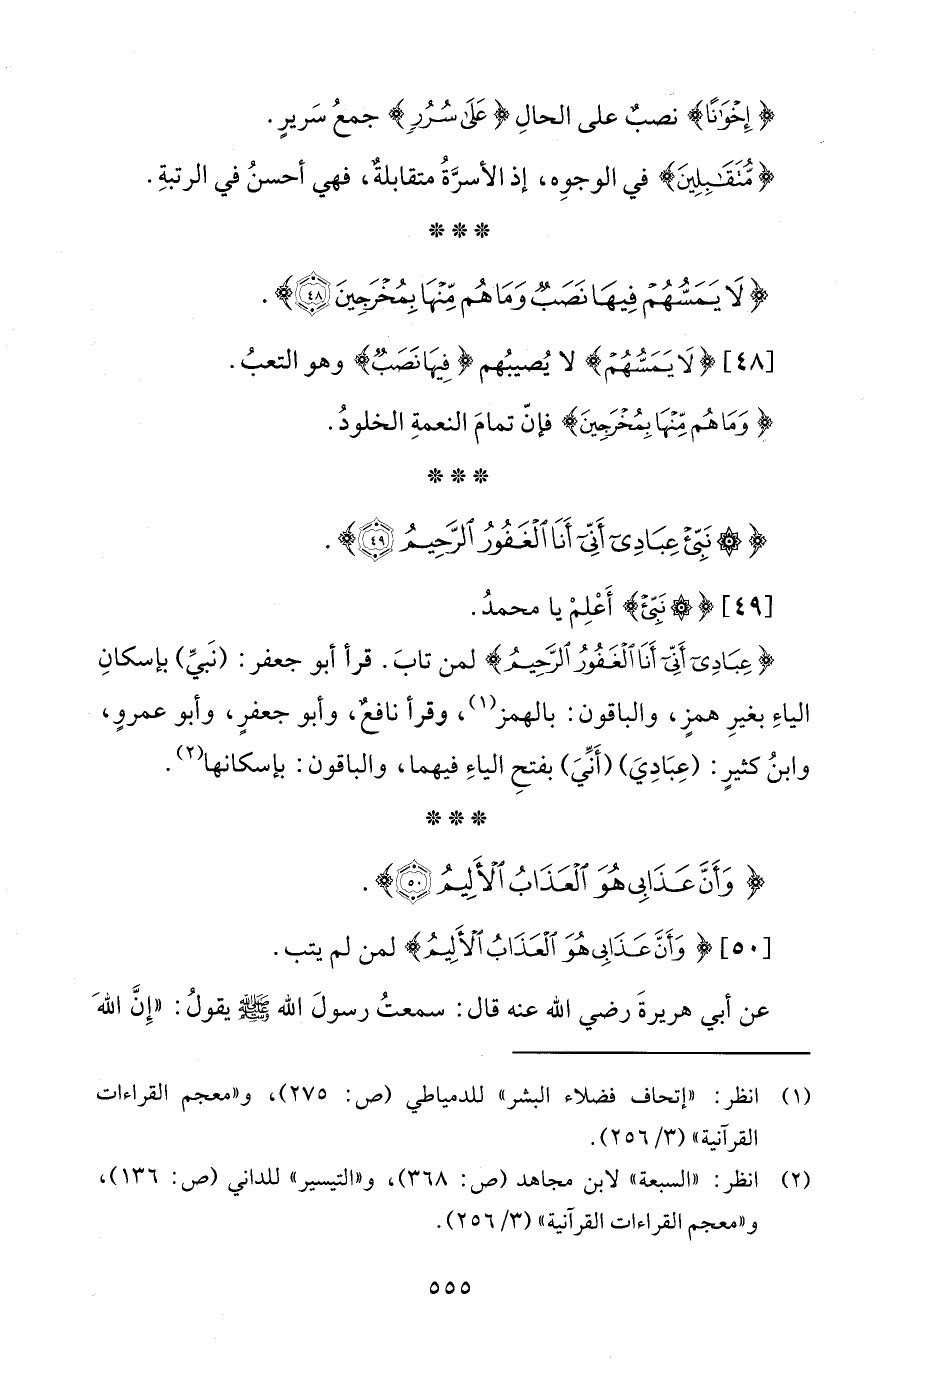 ﴿إِخْوَٰنًا﴾ نصبٌ على الحالِ ﴿عَلَىٰ سُرُرٍ﴾ جمعُ سَريرٍ.
﴿مُّتَقَٰبِلِينَ﴾ في الوجوِه، إذ الأسرَّةُ متقابلةٌ، فهي أحسنُ في الرتبةِ.
* * *
﴿لَا يَمَسُّهُمْ فِيهَا نَصَبٌ وَمَا هُم مِّنْهَا بِمُخْرَجِينَ ٤٨﴾.
[٤٨] ﴿لَا يَمَسُّهُمْ﴾ لا يُصيبُهم ﴿فِيهَا نَصَبٌ﴾ وهو التعبُ.
﴿وَمَا هُم مِّنْهَا بِمُخْرَجِينَ﴾ فإنّ تمامَ النعمةِ الخلودُ.
* * *
﴿۞ نَبِّئْ عِبَادِىٓ أَنِّىٓ أَنَا ٱلْغَفُورُ ٱلرَّحِيمُ ٤٩﴾.
[٤٩] ﴿۞ نَبِّئْ﴾ أَعْلِمْ يا محمدُ.
﴿عِبَادِىٓ أَنِّىٓ أَنَا ٱلْغَفُورُ ٱلرَّحِيمُ﴾ لمن تابَ. قرأ أبو جعفر: (نَبيِّ) بإسكانِ
الياءِ بغيرِ همزٍ، والباقون: بالهمز(١)، وقرأ نافعٌ، وأبو جعفرٍ، وأبو عمرٍو،
وابنُ كثيرٍ: (عِبَادِيَ) (أَنِّيَ) بفتحِ الياءِ فيهما، والباقون: بإسكانها(٢).
* * *
﴿وَأَنَّ عَذَابِى هُوَ ٱلْعَذَابُ ٱلْأَلِيمُ ٥٠﴾.
[٥٠] ﴿وَأَنَّ عَذَابِى هُوَ ٱلْعَذَابُ ٱلْأَلِيمُ﴾ لمن لم يتب.
عن أبي هريرةَ رضي الله عنه قال: سمعتُ رسولَ الله ﷺ يقولُ: «إِنَّ اللهَ
(١) انظر: «إتحاف فضلاء البشر» للدمياطي (ص: ٢٧٥)، و«معجم القراءات
القرآنية» (٣/ ٢٥٦).
(٢) انظر: «السبعة» لابن مجاهد (ص: ٣٦٨)، و«التيسير» للداني (ص: ١٣٦)،
و«معجم القراءات القرآنية» (٣/ ٢٥٦).
٥٥٥